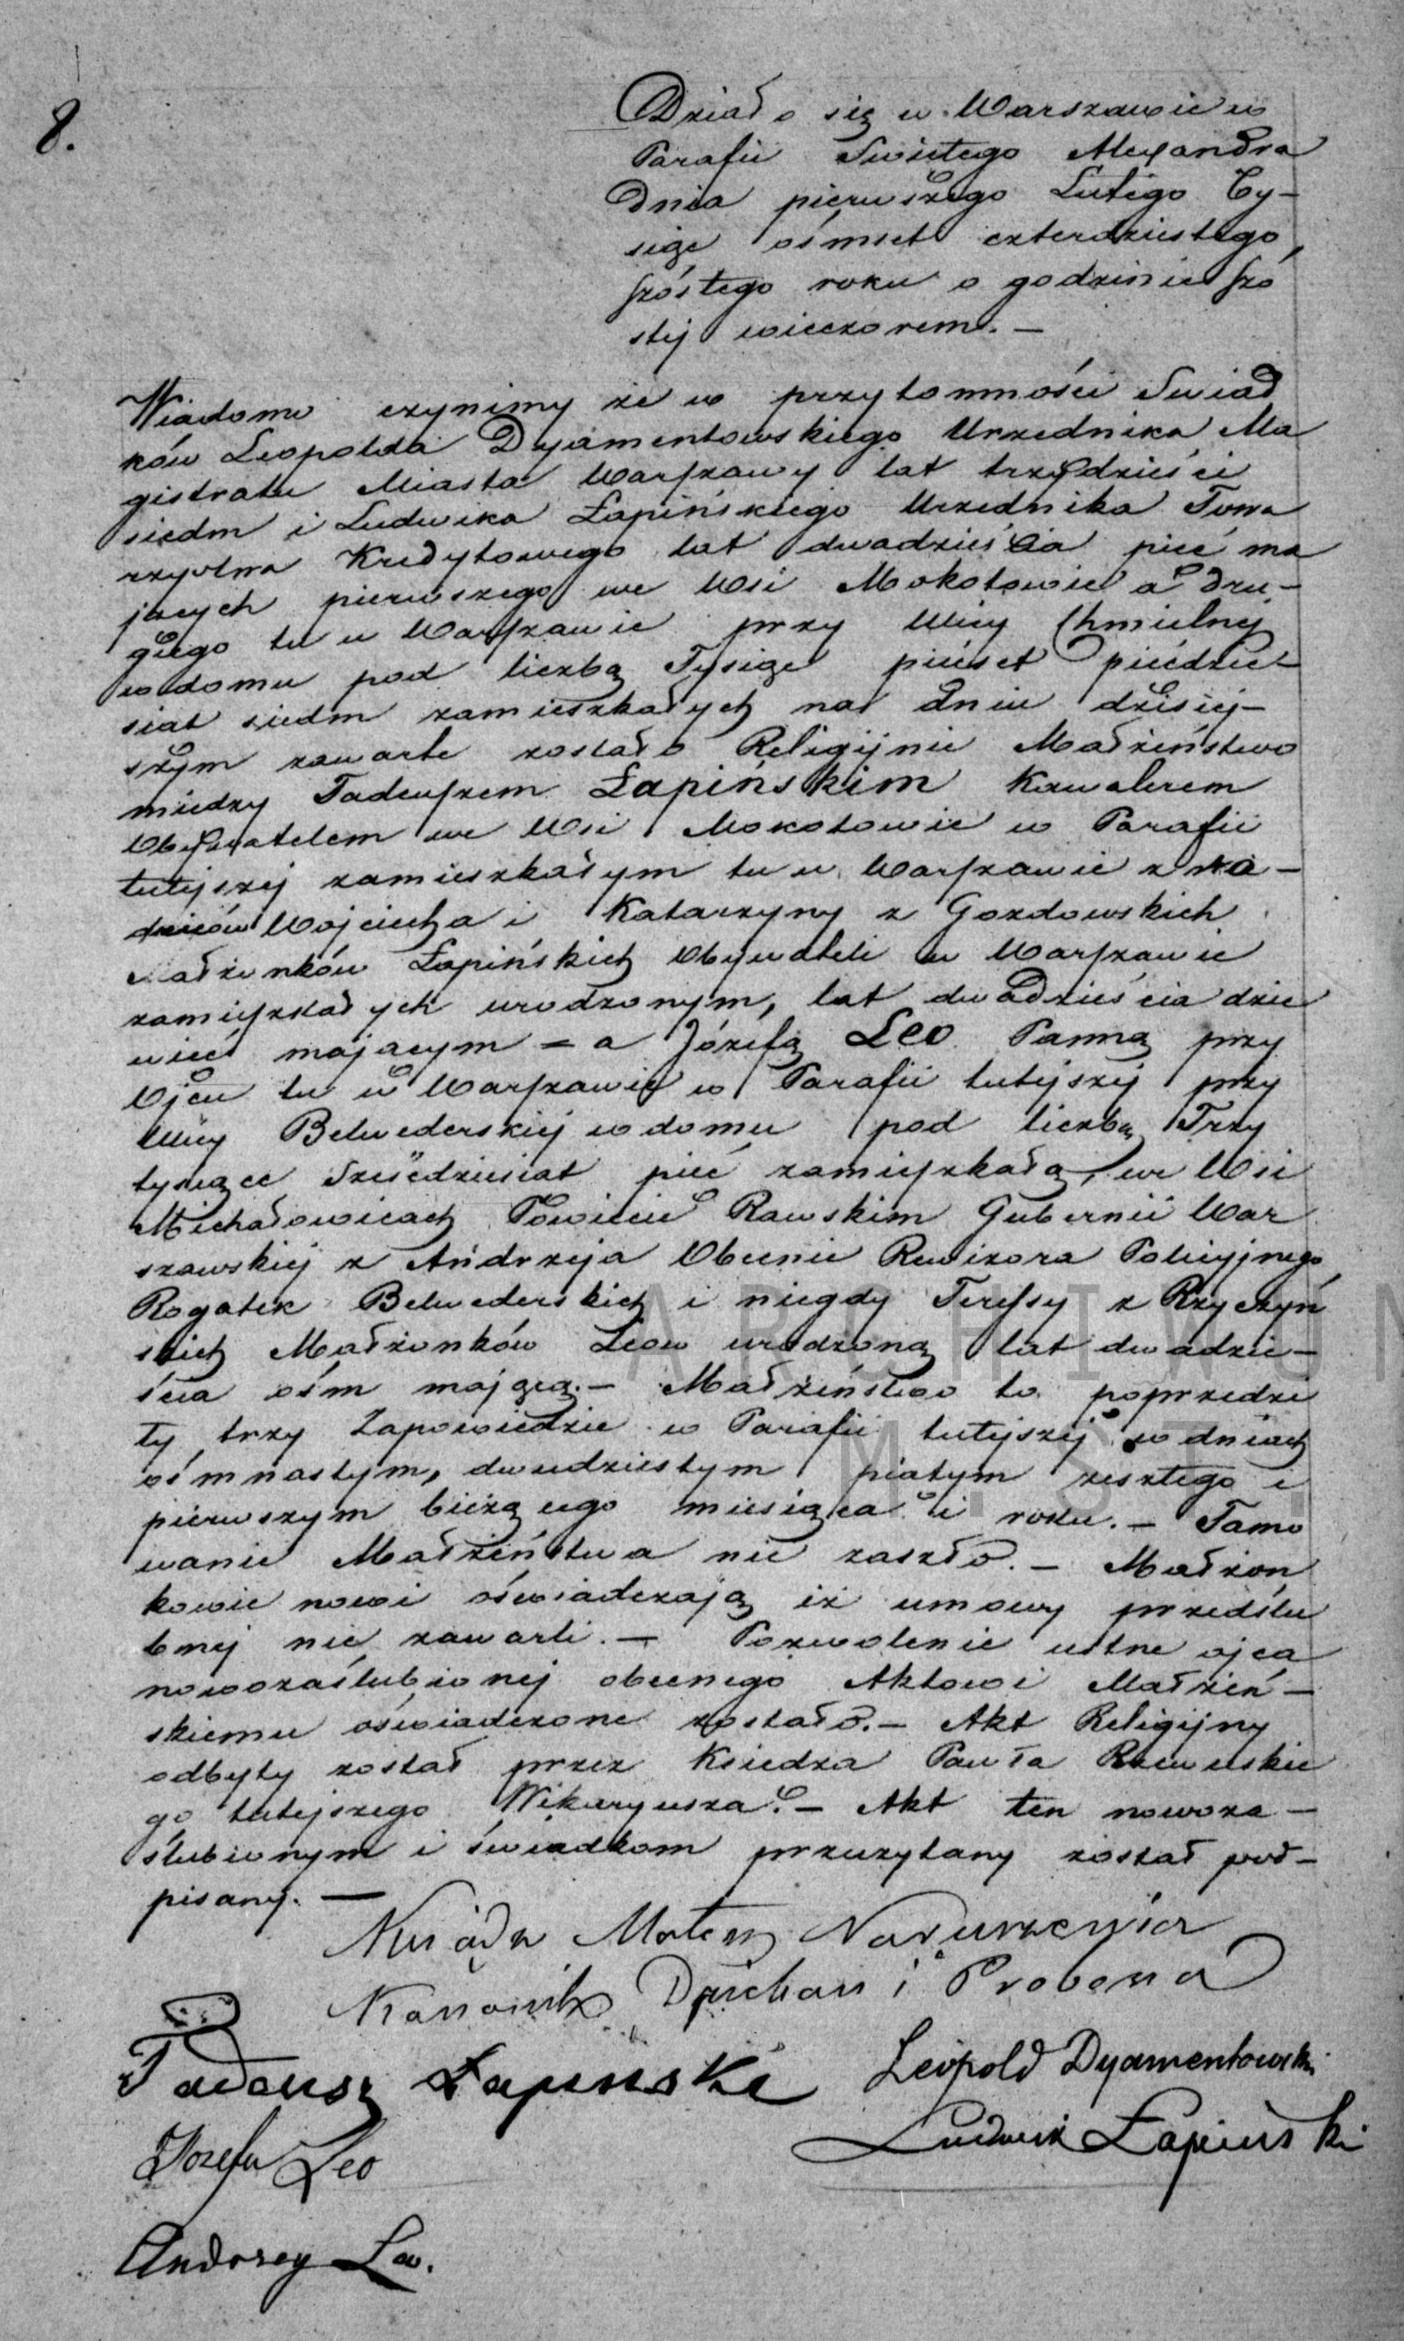 8.
Działo się w Warszawie w
Parafii Swiętego Alexandra
Dnia pierwszego Lutego Ty-
siąc ośmset czterdziestego
szóstego roku o godzinie szó
stej wieczorem. —
Wiadomo czynimy że w przytomności Swiad
ków Leopolda Dyamentowskiego Urzednika Ma
gistratu Miasta Warszawy lat trzydzieści
siedm i Ludwika Łapińskiego Urzednika Towa
rzystwa Kredytowego lat dwadzieścia pieć ma
jących pierwszego we Wsi Mokotowie a dru-
giego tu w Warszawie przy Ulicy Chmielnej
w domu pod liczbą Tysiąc pięćset pięćdzie-
siat siedm zamieszkałych na dniu dzisiej-
szym zawarte zostało Religijnie Małżeństwo
miedzy Tadeuszem Łapińskim Kawalerem
Obywatelem we Wsi Mokotowie w Parafii
tutejszej zamieszkałym tu w Warszawie z
Wojciecha i Katarzyny z Gozdowskich
Małżonków Łapińskich Obywateli w Warszawie
zamieszkałych urodzonym, lat dwadzieścia dzie
wieć mającym = a Józefą Leo Panną przy
Ojcu tu w Warszawie w Parafii tutejszej przy
Ulicy Belwederskiej w domu pod liczbą Trzy
tysiące Sześćdziesiat pieć zamieszkałą, we Wsi
Michałowicach Powiecie Rawskim Gubernii War
szawskiej z Andrzeja Obecnie Rewizora Policyjnego
Rogatek Belwederskich i niegdy Teressy z Rzyczyń
skich Małżonków Leow urodzoną lat dwadzie-
ścia ośm mającą. — Małżeństwo to poprzedzi
ły trzy Zapowiedzie w Parafii tutejszej w dniach
ośmnastym, dwudziestym piątym zeszłego i
pierwszym bieżącego miesiąca i roku. — Tamo
wanie Małżeństwa nie zaszło. — Małżon
kowie nowi oświadczają iż umowy przedślu
bnej nie zawarli. — Pozwolenie ustne ojca
nowozaślubionej obecnego Aktowi Małżeń-
skiemu oświadczone zostało. — Akt Religijny
odbyty został przez Ksiedza Pawła Rzewuskie
go tutejszego Wikaryusza. — Akt ten nowoza-
ślubionym i świadkom przeczytany został pod-
pisany. —
Kanonik Dziekan i
Tadeusz Łapinski
Leopold Dyamentowski
Ludwik Łapiński
Jozefa Leo
Andrzey Leo.
ARCHIWUM
M. ST.